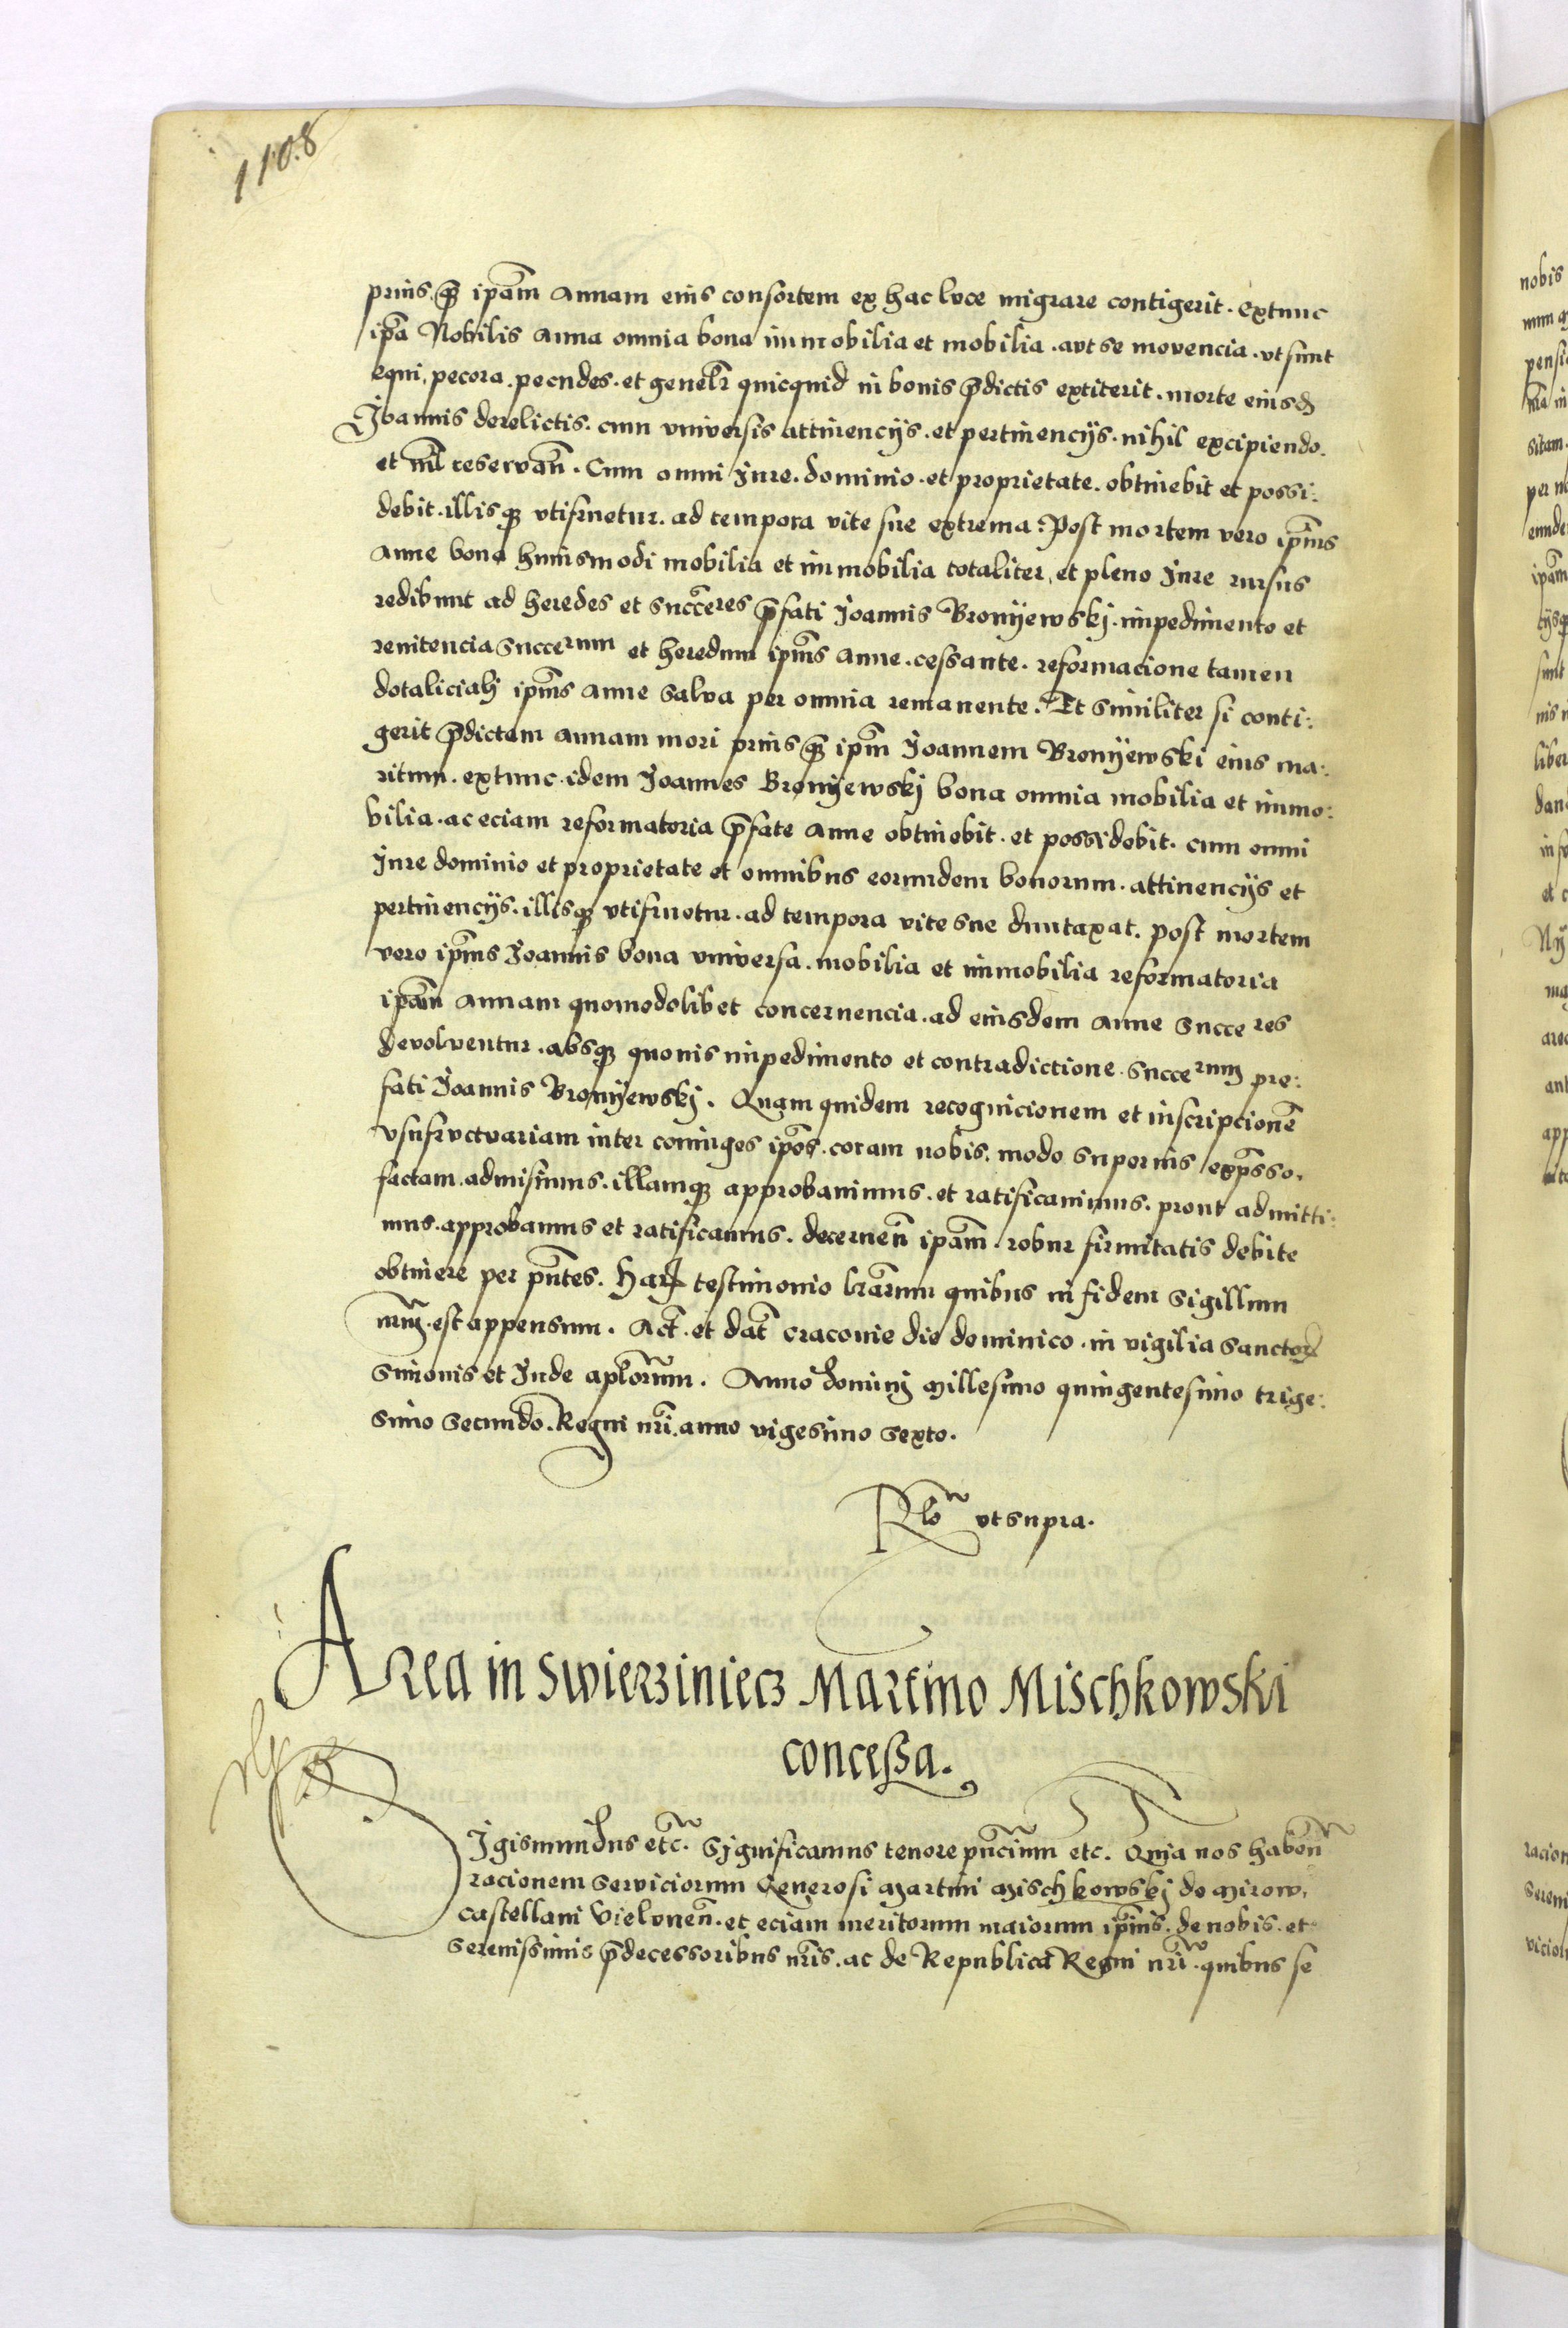 1108
prius q̄ ip̄am Annam eius consortem ex hac luce migrare contigerit. extunc
ip̄a Nobilis Anna omnia bona immobilia et mobilia. aut se movencia. ut sunt
equi, pecora. pecudes. et genel̄r quicquid in bonis p̄dictis extiterit. morte eiusd̄
Joannis derelictis. cum universis attinencijs. et pertinencijs. nihil excipiendo.
et nīl reservan̄. Cum omni Jure. dominio. et proprietate. obtinebit et possi:
debit. illisq̄ utifruetur. ad tempora vite sue extrema: Post mortem vero ip̄ius
Anne bona huiusmodi mobilia et immobilia totaliter, et pleno Jure rursus
redibunt ad heredes et succ̄eres p̄fati Joannis Bronyewskj. impedimento et
renitencia succerum et heredum ip̄ius Anne. cessante. reformacione tamen
dotaliciali ip̄ius Anne salva per omnia remanente. Et similiter si conti:
gerit p̄dictam Annam mori prius q̄ ip̄m Joannem Bronyewski eius ma:
ritum. extunc. idem Joannes Bronyewskj bona omnia mobilia et immo:
bilia. ac eciam reformatoria p̄fate Anne obtinebit. et possidebit. cum omni
Jure dominio et proprietate et omnibus eorumdem bonorum. attinencijs et
pertinencijs. illisq̄ utifruetur. ad tempora vite sue duntaxat. post mortem
vero ip̄ius Joannis bona universa. mobilia et immobilia reformatoria
ip̄am Annam quomodolibet concernencia. ad eiusdem Anne succeres
devolventur. absq̄ quovis impedimento et contradictione. succerum pre:
fati Joannis Bronyewskj. Quam quidem recognicionem et inscripcionē
usufructuariam inter coniuges ip̄os. coram nobis. modo superius exp̄sso.
factam. admisimus. illamq̄ approbavimus. et ratificavimus. prout admitti:
mus. approbamus et ratificamus. decernen̄ ip̄am. robur firmitatis debite
obtinere per pn̄tes. Harꝝ testimonio lr̄arum quibus in fidem sigillum
nr̄m. est appensum. Act̄. et dat̄ Cracovie die dominico. in vigilia sanctorꝝ
Simonis et Jude ap̄lorum. Anno domini Millesimo quingentesimo trige:
simo secundo. Regni nr̄i. anno vigesimo sexto.
Rl̄o ut supra.
Area in Swierziniecz Martino Mischkowski
conceßa.
Sigismundus etc̄. Significamus tenore pn̄cium etc. Quia nos haben̄
racionem serviciorum Generosi Martini Mischkowskj de Mirow,
castellani Vielunen̄. et eciam meritorum maiorum ip̄ius. de nobis. et
serenissimis p̄decessoribus nr̄is. ac de Republica Regni nr̄i. quibus se